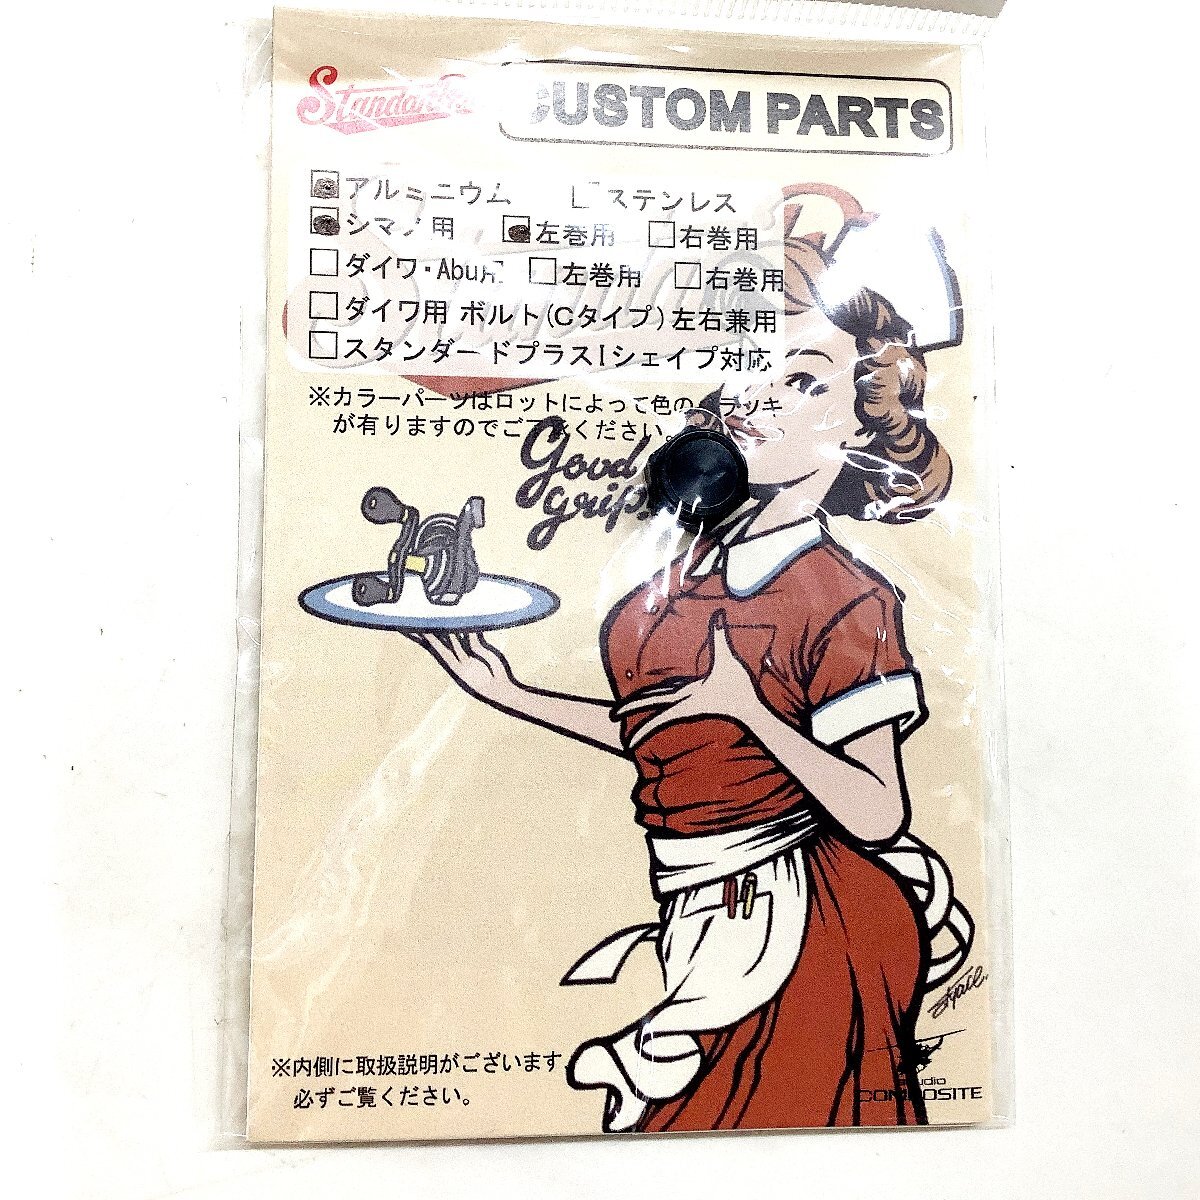 CUSTOM PARTS
アルミニウム ステンレス
シマノ用 左巻用 右巻用
ダイワ・Abu用 左巻用 右巻用
ダイワ用 ボルト(Cタイプ)左右兼用
スタンダードプラスIシェイプ対応
※カラーパーツはロットによって色のバラツキ
が有りますのでご了承ください。
Good
grip!
※内側に取扱説明がございます
必ずご覧ください。
studio
COMPOSITE